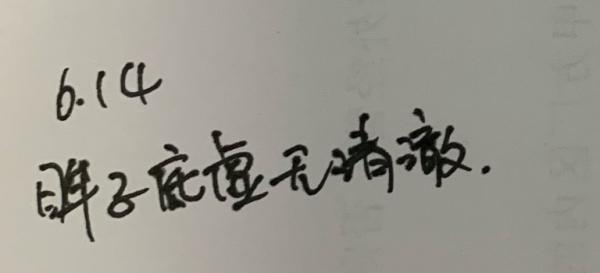 6.14
眸子底虚无清澈.